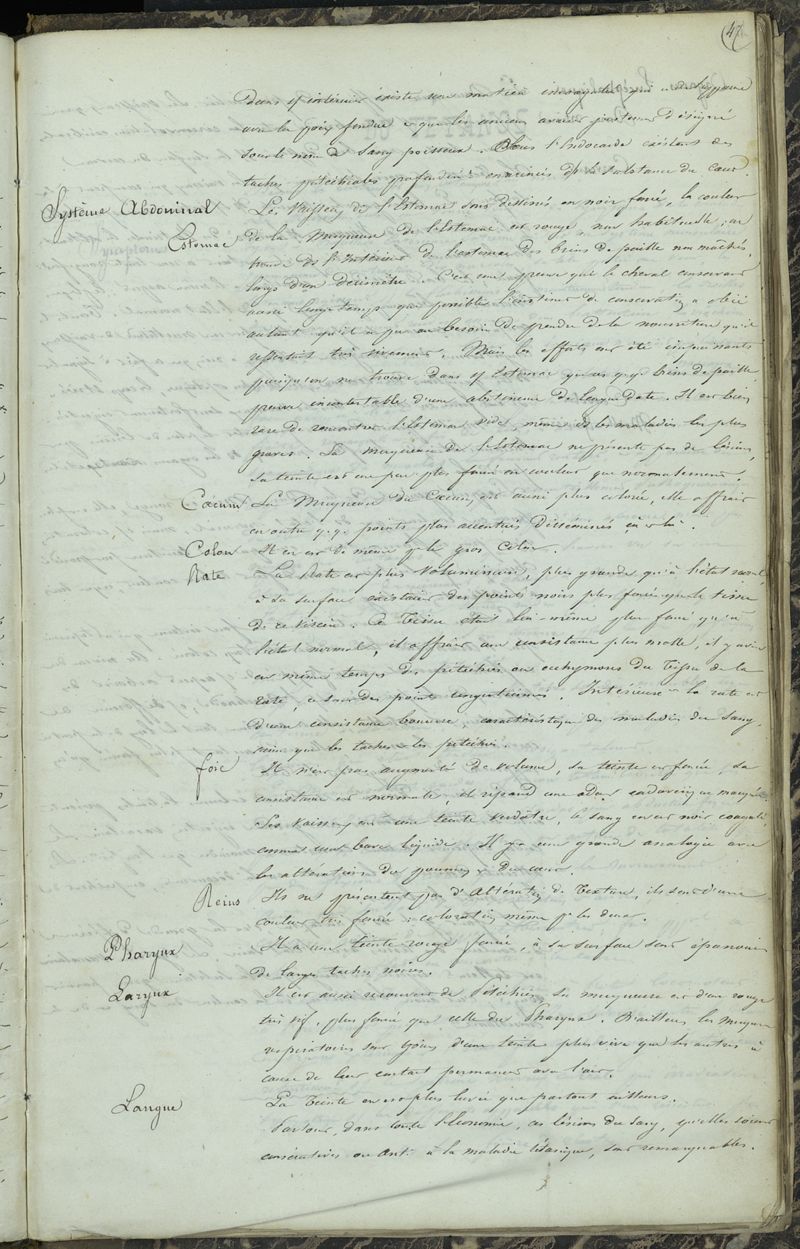 47
Dans s/ intérieur existe une matière
avec la poix fondue et que les anciens avaient justement désigné
sous le nom de Sang poisseux. Sous l'Endocarde existent des
taches pétéchiales profondémt enracinées ds la substance du cœur.
Système Abdominal
Estomac
Les Vaisseaux de l'Estomac sont dessinés en noir foncé, la couleur
de la Muqueuse de l'Estomac est rouge, non habituelle, on
trouve ds l'Intérieur de l'estomac des brins de paille non mâchés,
longs d'un décimètre. C'est une preuve que le cheval conservant
aussi longtemps que possible l'instinct de conservation a obéi
autant qu'il a pu au besoin de prendre de la nourriture qu'il
ressentait très vivement. Mais les efforts ont été impuissants
puisqu'on ne trouve dans s/ Estomac que ces qq. brins de paille
preuve incontestable d'une abstinence de longue date. Il est bien
rare de rencontrer l'Estomac vide, même ds les maladies les plus
graves. La muqueuse de l'Estomac ne présente pas de lésions,
sa teinte est un peu plus foncée en couleur que normalement.
Cœcum
La Muqueuse du Cœcum est aussi plus colorée, elle offrait
en outre q.q. points plus accentués disséminés çà et là.
Colon
Il en est de même p. le gros Colon.
Rate
La Rate est plus volumineuse, plus grande qu'à l'état normal
à sa surface existaient des points noirs plus foncés que le tissu
de ce viscère. Ce Tissu étant lui-même plus foncé qu'à
l'état normal, il offrait une consistance plus molle, il y avait
en même temps des pétéchies ou ecchymoses du Tissu de la
rate, ce sont des points . Intérieuremt la rate est
d'une consistance boueuse, caractéristique des maladies du Sang,
ainsi que les taches et les pétéchies.
foie
Il n'est pas augmenté de volume, sa teinte est foncée, sa
consistance est normale, il répand une odeur cadavérique marquée.
Ses Vaisseaux ont une teinte verdâtre, le sang en est noir coagulé,
comme une boue liquide. Il y a une grande analogie avec
les altérations du poumon et du cœur.
Reins
Ils ne présentent pas d'Altération de Texture, ils sont d'une
couleur très foncée, coloration même p. les deux.
Pharynx
Il a une teinte rouge foncée, à sa surface sont épanouies
de larges taches noires.
Larynx
Il est aussi recouvert de Pétéchies. Sa muqueuse est d'un rouge
très vif, plus foncé que celle du Pharynx. D'ailleurs les muqueuses
respiratoires sont tjours d'une teinte plus vive que les autres à
cause de leur contact permanent avec l'air.
Langue
La Teinte en est plus livide que partout ailleurs.
Partout, dans toute l'Economie, ces lésions du Sang, qu'elles soient
consécutives ou Ant. à la maladie tétanique, sont remarquables.